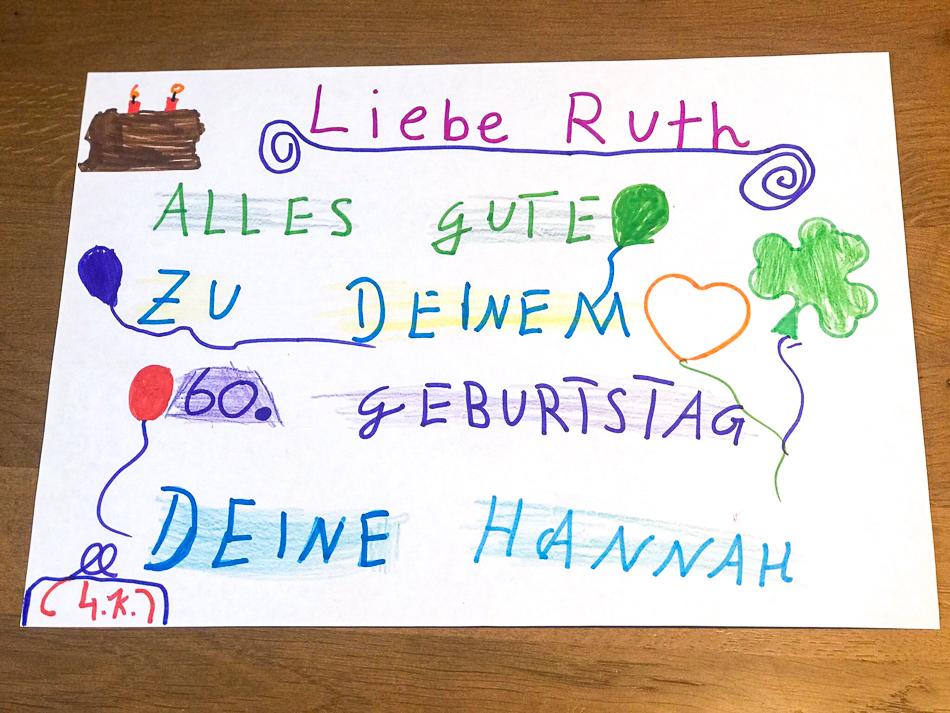 60
Liebe Ruth
ALLES GUTE
ZU DEINEM
60. GEBURTSTAG
DEINE HANNAH
(4.K.)